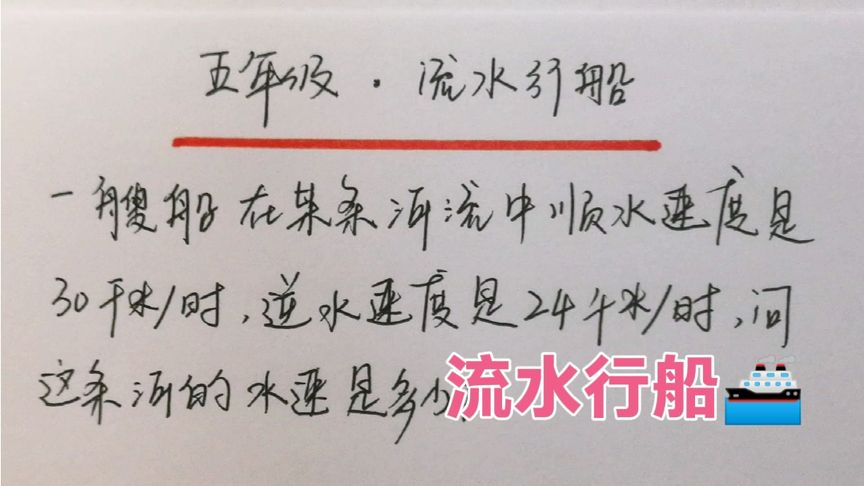 五年级·流水行船
一艘船在某条河流中顺水速度是
30千米/时,逆水速度是24千米/时,问
这条河的水速是多少
流水行船